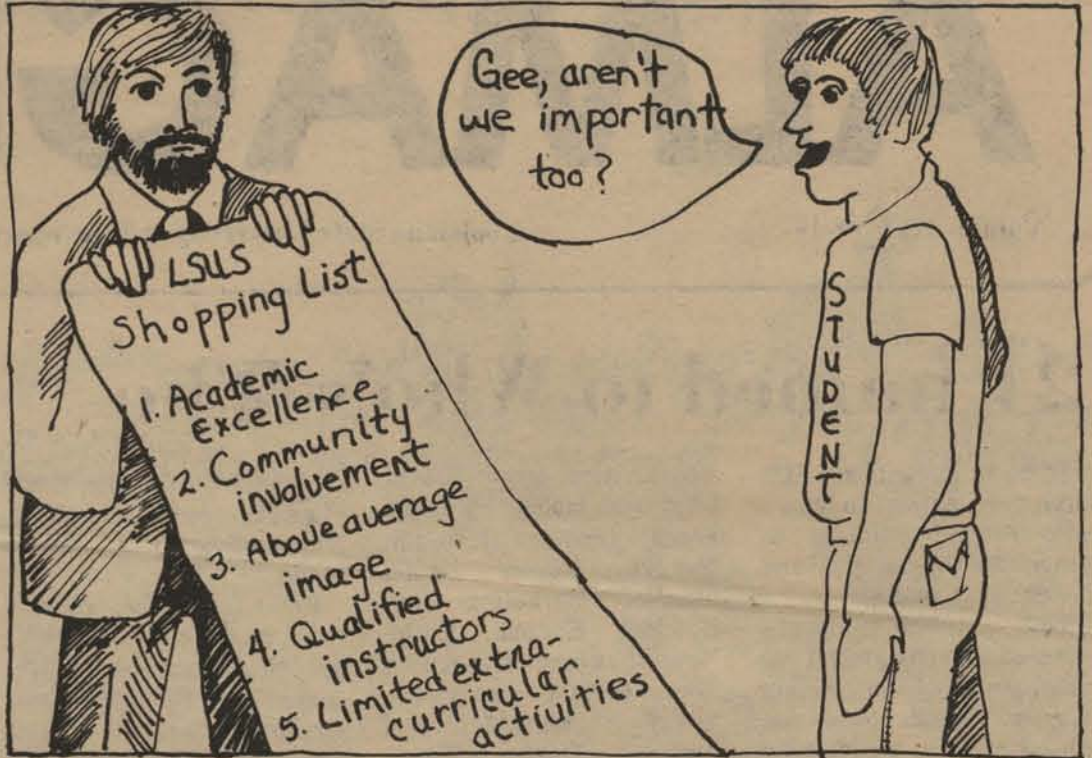 Gee, aren't
we important
too?
STUDENT
LSUS
Shopping List
1. Academic
Excellence
2. Community
involvement
3. Above average
image
4. Qualified
instructors
5. Limited extra-
curricular
activities